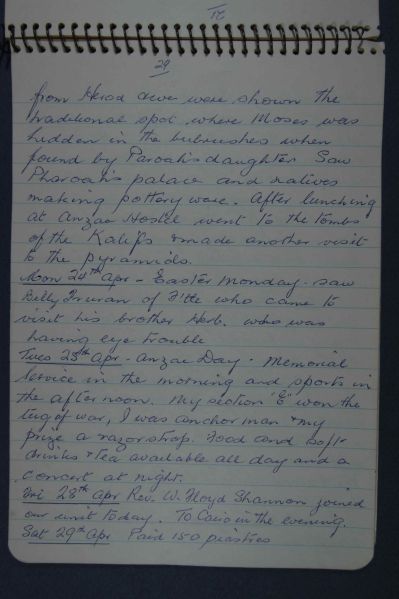 29
from Herod & we were shown the
traditional spot where Moses was
hidden in the bulrushes when
found by Paroah's daughter. Saw
Pharoah's palace and natives
making pottery ware. After lunching
at Anzac Hostel went to the tombs
of the Kalifs & made another visit
to the pyramids.
Mon 24th Apr - Easter Monday. saw
Billy of who came to
visit his brother Herb. who was
having eye trouble
Tues 25th Apr - Anzac Day. Memorial
Service in the morning and sports in
the afternoon. My section "E" won the
tug of war, I was anchor man & my
prize a razor strop. Food and soft
drinks & tea available all day and a
concert at night.
Fri 28th Apr Rev. W. Floyd Shannon joined
our unit today. To Cairo in the evening.
Sat 29th Apr Paid 150 piastres